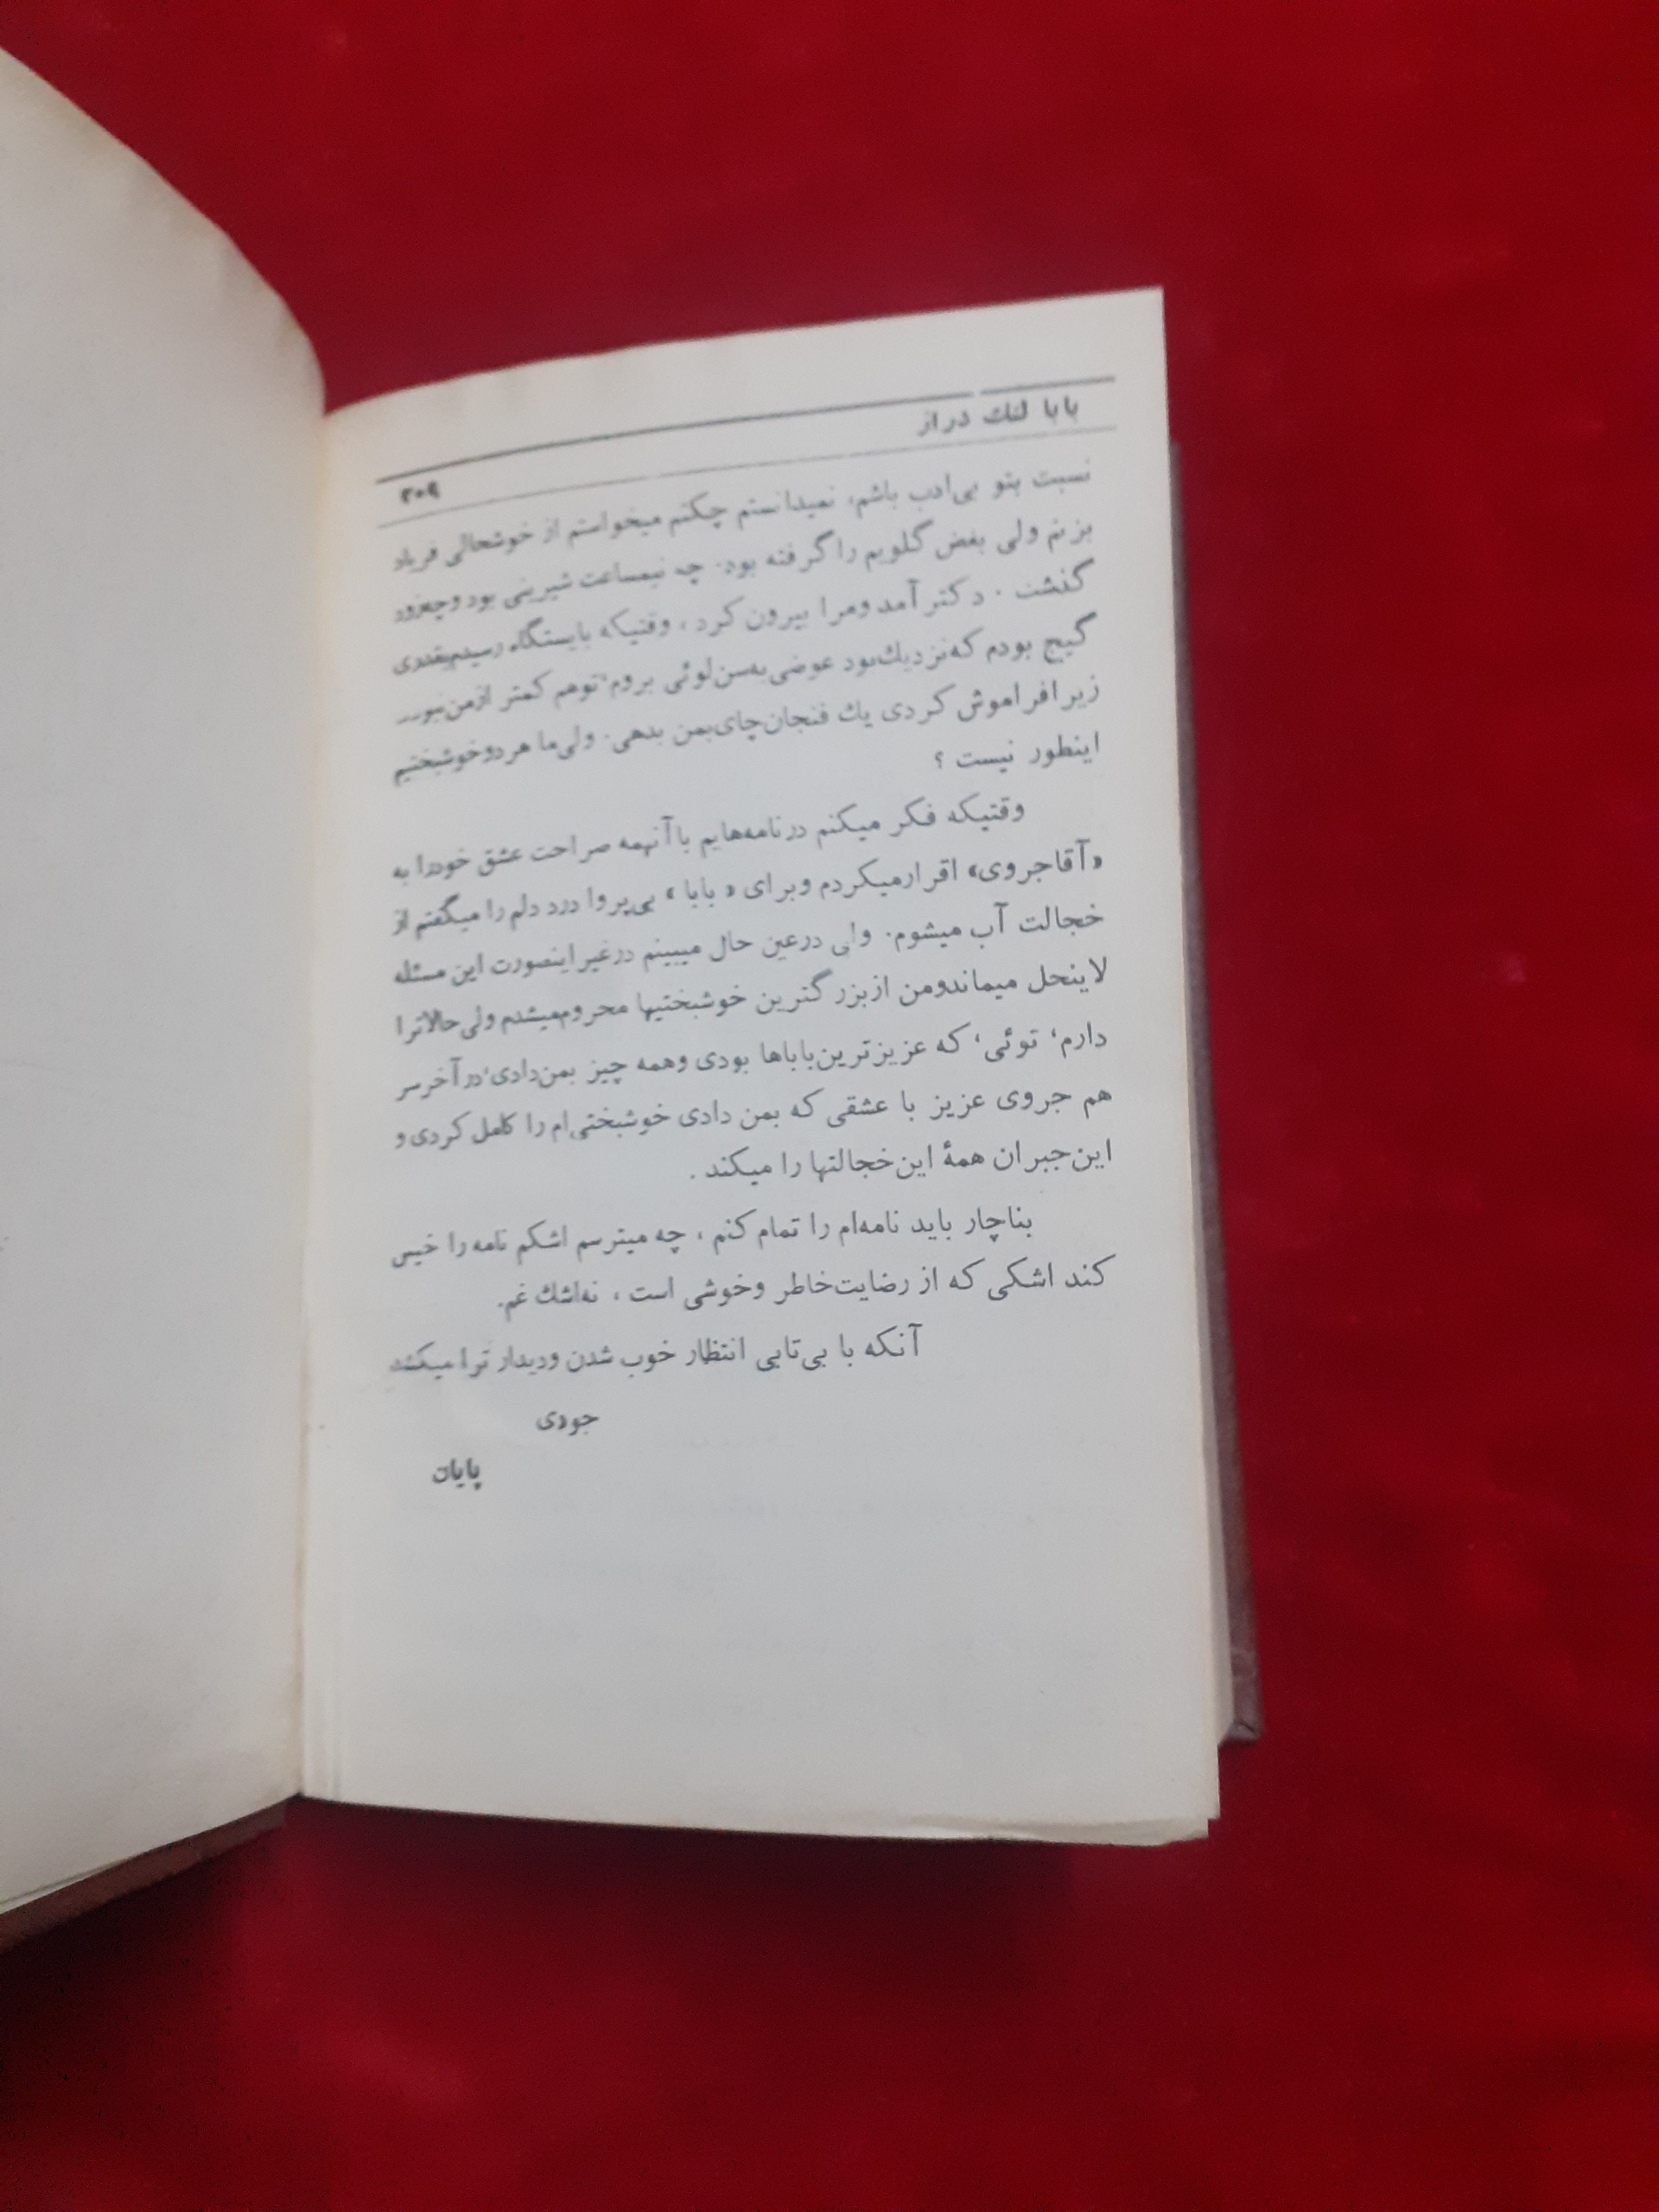 بابا لنگ دراز
۲۰۹
نسبت بتو بی‌ادب باشم، نمیدانستم چکنم میخواستم از خوشحالی فریاد
بزنم ولی بغض گلویم را گرفته بود. چه نیمساعت شیرینی بود وچه‌زود
گذشت . دکتر آمد ومرا بیرون کرد ، وقتیکه بایستگاه رسیدم‌بقدری
گیج بودم که‌نزدیك‌بود عوضی‌به‌سن‌لوئی بروم، توهم کمتر ازمن‌نبو—
زیرافراموش کردی یك فنجان‌چای‌بمن بدهی. ولی‌ما هردوخوشبختیم
اینطور نیست ؟
وقتیکه فکر میکنم درنامه‌هایم باآنهمه صراحت عشق خودرا به
«آقاجروی» اقرارمیکردم وبرای « بابا » بی‌پروا درد دلم را میگفتم از
خجالت آب میشوم. ولی درعین حال میبینم درغیراینصورت این مسئله
لاینحل میماندومن ازبزرگترین خوشبختیها محروم‌میشدم ولی‌حالاترا
دارم، توئی، که عزیزترین‌باباها بودی وهمه چیز بمن‌دادی،درآخرسر
هم جروی عزیز با عشقی که بمن دادی خوشبختی‌ام را کامل کردی و
این‌جبران همهٔ این‌خجالتها را میکند .
بناچار باید نامه‌ام را تمام کنم ، چه میترسم اشکم نامه را خیس
کند اشکی که از رضایت‌خاطر وخوشی است ، نه‌اشك غم.
آنکه با بی‌تابی انتظار خوب شدن ودیدار ترا میکشد
جودی
پایان